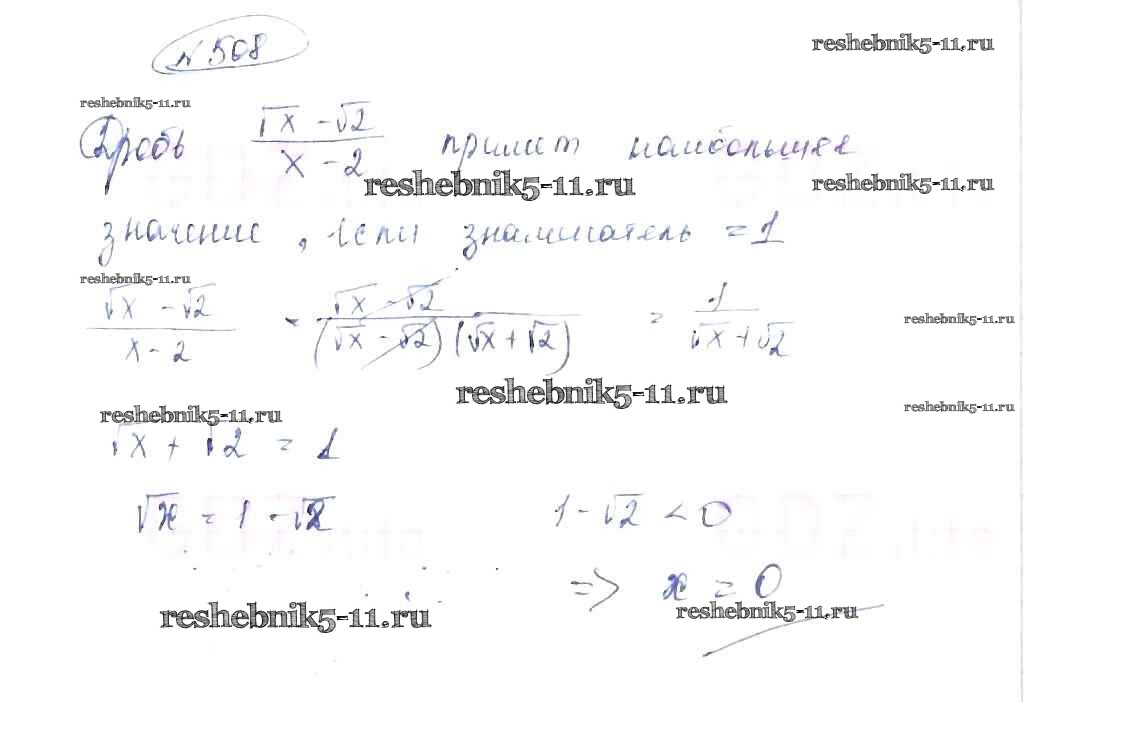 №508
reshebnik5-11.ru
reshebnik5-11.ru
Дробь (√x - √2)/(x - 2) примет наибольшее
reshebnik5-11.ru
reshebnik5-11.ru
значение, если знаминатель = 1
reshebnik5-11.ru
(√x - √2)/(x - 2) = (√x - √2)/((√x - √2)(√x + √2)) = 1/(√x + √2)
reshebnik5-11.ru
reshebnik5-11.ru
reshebnik5-11.ru
reshebnik5-11.ru
√x + √2 = 1
√x = 1 - √2 1 - √2 < 0
=> x = 0
reshebnik5-11.ru
reshebnik5-11.ru